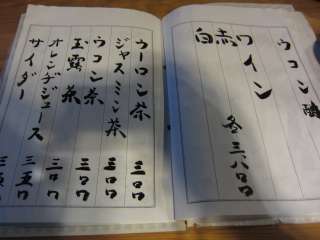 ウコン
赤ワイン
白
各 三、八〇〇
ウーロン茶 三〇〇
ジャスミン茶
ウコン茶 三〇〇
玉露茶 三〇〇
オレンヂジュース 三五〇
サイダー 三五〇